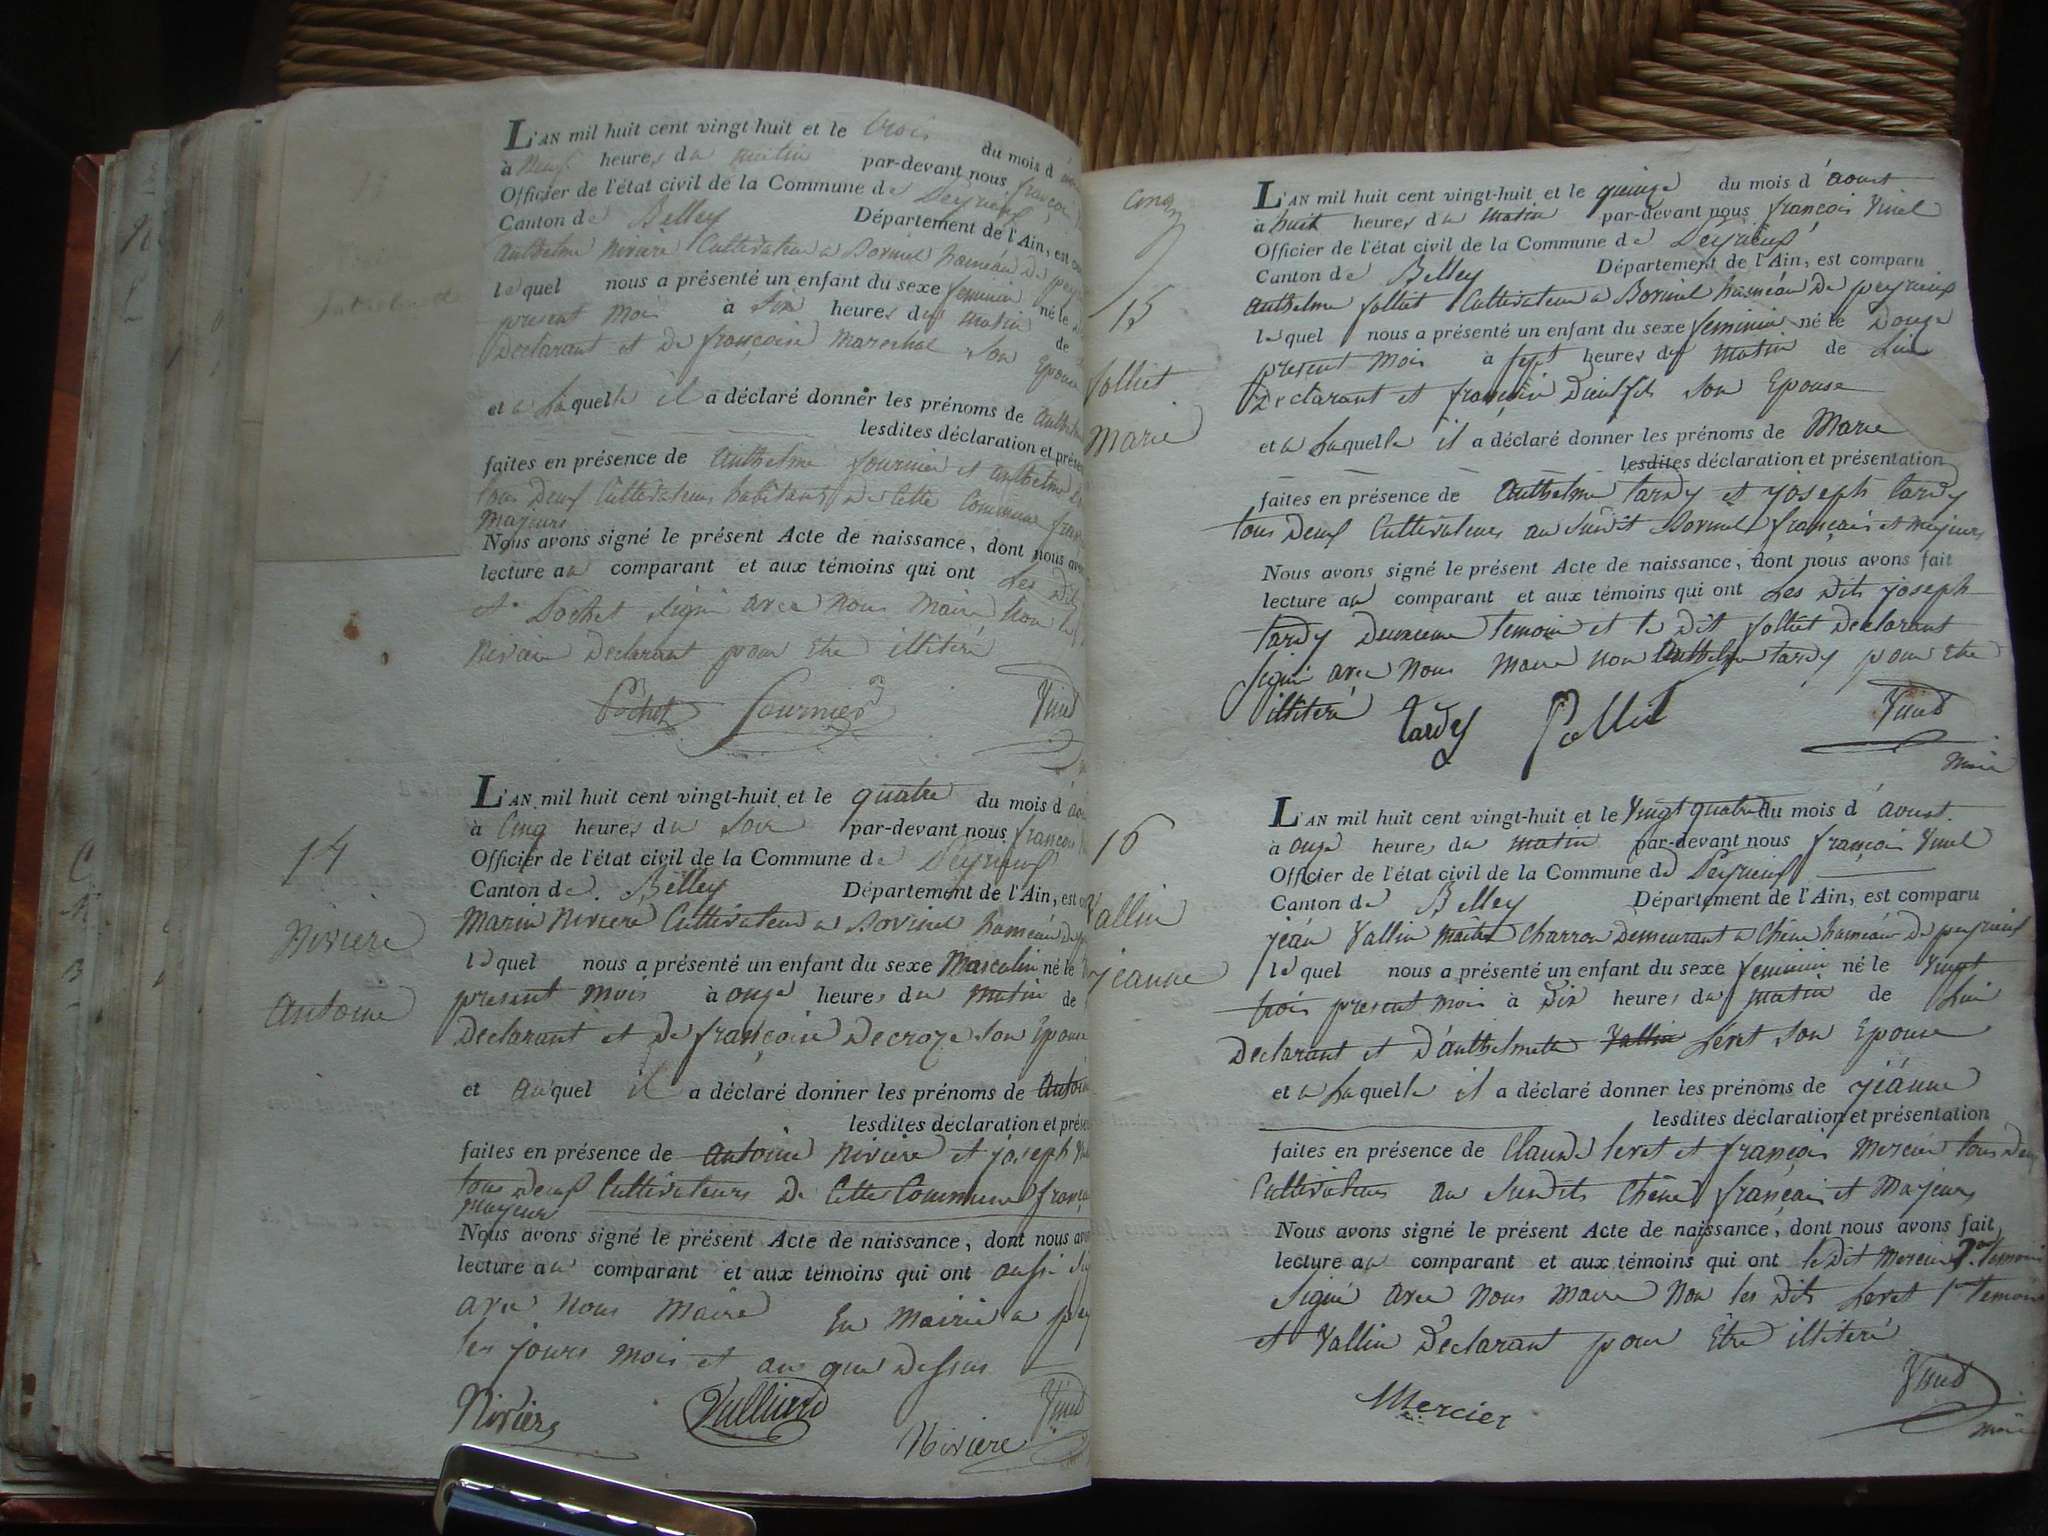 L'AN mil huit cent vingt-huit et le trois du mois d'
à neuf heures du matin par-devant nous françois
Officier de l'état civil de la Commune de Peyrieux
Canton de Belley Département de l'Ain, est
anthelme Niviere Cultivateur a Bovinel hameau de
lequel nous a présenté un enfant du sexe feminin né le
present mois à six heures du matin de
Declarant et De françoise marechal son Epouse
et a laquelle il a déclaré donner les prénoms de
lesdites déclaration et
faites en présence de anthelme fournier et anthelme
tous Deux Cultivateurs habitants de Cette Commune
majeurs
Nous avons signé le présent Acte de naissance, dont nous
lecture au comparant et aux témoins qui ont Les Dits
et Pochet signé avec nous maire non le
Niviere Declarant pour Etre illiteré
Pochet fournier Vuied
14
Niviere
antoine
L'AN mil huit cent vingt-huit et le quatre du mois d'
à Cinq heures du Soir par-devant nous françois
Officier de l'état civil de la Commune de Peyrieux
Canton de Belley Département de l'Ain, est
Marin Niviere Cultivateur a Bovinel hameau de
lequel nous a présenté un enfant du sexe Masculin né le
present mois à onze heures du matin de
Declarant et De françoise Decroze son Epouse
et auquel il a déclaré donner les prénoms de
lesdites déclaration et
faites en présence de antoine Niviere et joseph
tous Deux Cultivateurs De Cette Commune
majeur
Nous avons signé le présent Acte de naissance, dont nous
lecture au comparant et aux témoins qui ont aussi
avec nous maire En Mairie a
les jours mois et an que Dessus
Niviere Vullierd Niviere Vuied
Cinq
15
folliet
Marie
L'AN mil huit cent vingt-huit et le quinze du mois d'aoust
à huit heures du matin par-devant nous françois Vuied
Officier de l'état civil de la Commune de Peyrieux
Canton de Belley Département de l'Ain, est comparu
anthelme folliet Cultivateur a Bovinel hameau De peyrieux
lequel nous a présenté un enfant du sexe feminin né le Douze
present mois à sept heures du matin de Lui
Declarant et françoise son Epouse
et a laquelle il a déclaré donner les prénoms de Marie
lesdites déclaration et présentation
faites en présence de anthelme tardy et joseph tardy
tous Deux Cultivateurs au Susdit Bovinel français et majeurs
Nous avons signé le présent Acte de naissance, dont nous avons fait
lecture au comparant et aux témoins qui ont Les Dits joseph
tardy Deuxieme temoin et le Dit folliet Declarant
signé avec nous maire non anthelme tardy pour Etre
illiteré tardy folliet Vuied
maire
16
Vallin
jeanne
L'AN mil huit cent vingt-huit et le Vingt quatre du mois d'aoust
à onze heures du matin par-devant nous françois Vuied
Officier de l'état civil de la Commune de Peyrieux
Canton de Belley Département de l'Ain, est comparu
jean Vallin maitre Charron Demeurant a Chêne hameau De peyrieux
lequel nous a présenté un enfant du sexe feminin né le Vingt
trois present mois à Dix heures du matin de Lui
Declarant et D'anthelmette Vallin Leret son Epouse
et a laquelle il a déclaré donner les prénoms de jeanne
lesdites déclaration et présentation
faites en présence de Claude Leret et françois Mercier tous Deux
Cultivateurs au Susdits Chêne français et Majeurs
Nous avons signé le présent Acte de naissance, dont nous avons fait
lecture au comparant et aux témoins qui ont le Dit Mercier 2me temoin
signé avec nous maire non les Dits Leret 1er temoin
et Vallin Declarant pour Etre illiteré
Mercier Vuied
maire